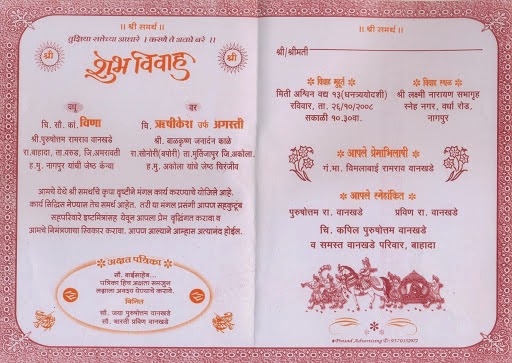 ॥ श्री समर्थ ॥
तुझिया सत्तेच्या आधारे । करणे ते अवघे बरे ॥
श्री
श्री
शुभ विवाह
वधू
चि. सौ. कां. विणा
श्री.पुरुषोत्तम रामराव वानखडे
रा.बाहादा, ता.वरुड, जि.अमरावती
ह.मु. नागपूर यांची जेष्ठ कन्या
वर
चि. ऋषीकेश उर्फ अगस्ती
श्री. बाळकृष्ण जनार्दन काळे
रा.सोनोरी(बपोरी) ता.मुर्तिजापूर जि.अकोला
ह.मु. अकोला यांचे जेष्ठ चिरंजीव
आमचे येथे श्री समर्थाचे कृपा दृष्टीने मंगल कार्य करण्याचे योजिले आहे.
कार्य सिद्धिस नेण्यास तेच समर्थ आहेत. तरी या मंगल प्रसंगी आपण सहकुटूंब
सहपरिवारे इष्टमित्रांसह येवून आपला प्रेम वृद्धिंगत करावा व
आमचे निमंत्रणाचा स्विकार करावा. आपण आल्याने आम्हास अत्यानंद होईल.
अक्षत पत्रिका
सौ. बाईसाहेब...
पत्रिका हिच अक्षता समजून
लग्नाला अवश्य येण्याचे करावे.
विनित
सौ. जया पुरुषोत्तम वानखडे
सौ. भारती प्रविण वानखडे
॥ श्री समर्थ ॥
श्री/श्रीमती
विवाह मुहूर्त
मिती अश्विन वद्य १३(धनत्रयोदशी)
रविवार, ता. २६/१०/२००८
सकाळी १०.३०वा.
विवाह स्थळ
श्री लक्ष्मी नारायण सभागृह
स्नेह नगर, वर्धा रोड,
नागपूर
आपले प्रेमाभिलाषी
गं.भा. विमलाबाई रामराव वानखडे
आपले स्नेहांकित
पुरुषोत्तम रा. वानखडे
प्रविण रा. वानखडे
चि. कपिल पुरुषोत्तम वानखडे
व समस्त वानखडे परिवार, बाहादा
Prasad Advertising